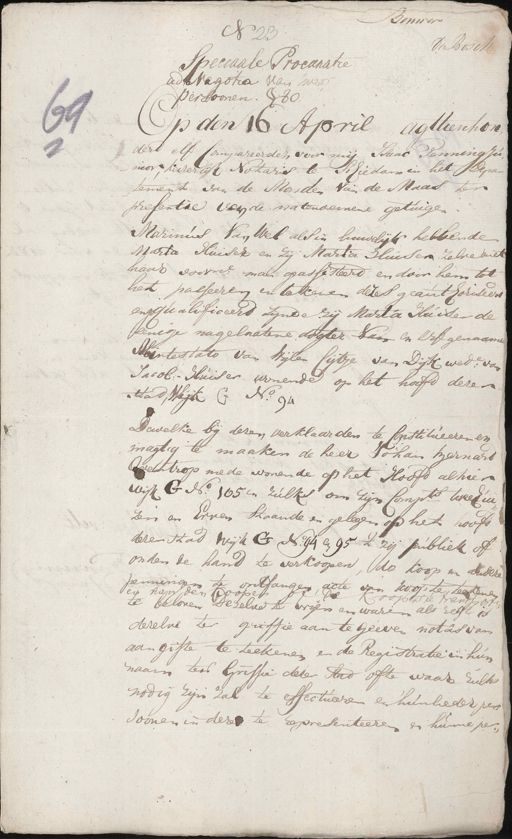 N° 23
69
Speciaale Procuratie
ad Negotia van twee
Persoonen.
Op den 16 April agttienhon
dert elf Compareerden voor mij
Notaris te Schiedam in het Depar
tement van de Monden van de Maas ter
presentie van de natenoemene getuigen.
Marinus van Wel als in huwelijk hebbende
Marta Kluiser en zij Marta Kluiser zelve met
haar voorn: man geassisteert en door hem tot
het passeeren en teekenen dezes geauthoriseert
en gequalificeerd zynde zij Marta Kluiser de
eenige nagelaatene dogter van en Erfgenaame
Abintestato van Wylen van Dyk wede. van
Jacob Kluiser woonende op het hoofd dezer
stad Wyk G N° 94
Dewelke bij deezen verklaarden te Constitueeren en
magtig te maaken de heer Johan Bernard
mede woonende op het Hoofd alhier
wijk G N° 105 en zulks om zijn Compts twee Hui
zen en Erven staande en gelegen op het hoofd
dezer stad Wyk G N° 94 & 95 't zij publiek of
onder de hand te verkoopen, de koop en
penningen te ontfangen, acte van koop te teekenen
te beloven dezelve te vrijen en waren als regt is
dezelve ter griffie aan te geven notas van
aangifte te teekenen en de Registratie in hun
naam ter Griffie dezer stad ofte waar zulks
nodig zijn zal te effectueeren en hunlieder per
soonen in dezen te representeeren en hunne per,